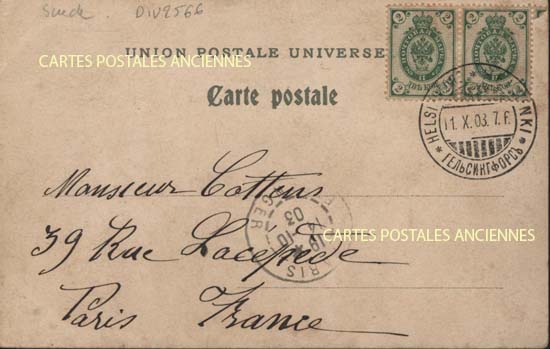 Suede DIV2566
CARTES POSTALES ANCIENNES
UNION POSTALE UNIVERSE
Carte postale
2 2 2 2
HELSINKI
11. X. 03. 7. F.
ГЕЛЬСИНГФОРСЪ
Monsieur Cottens
39 Rue Lacepède
Paris France
PARIS
ETRANGER
03
CARTES POSTALES ANCIENNES